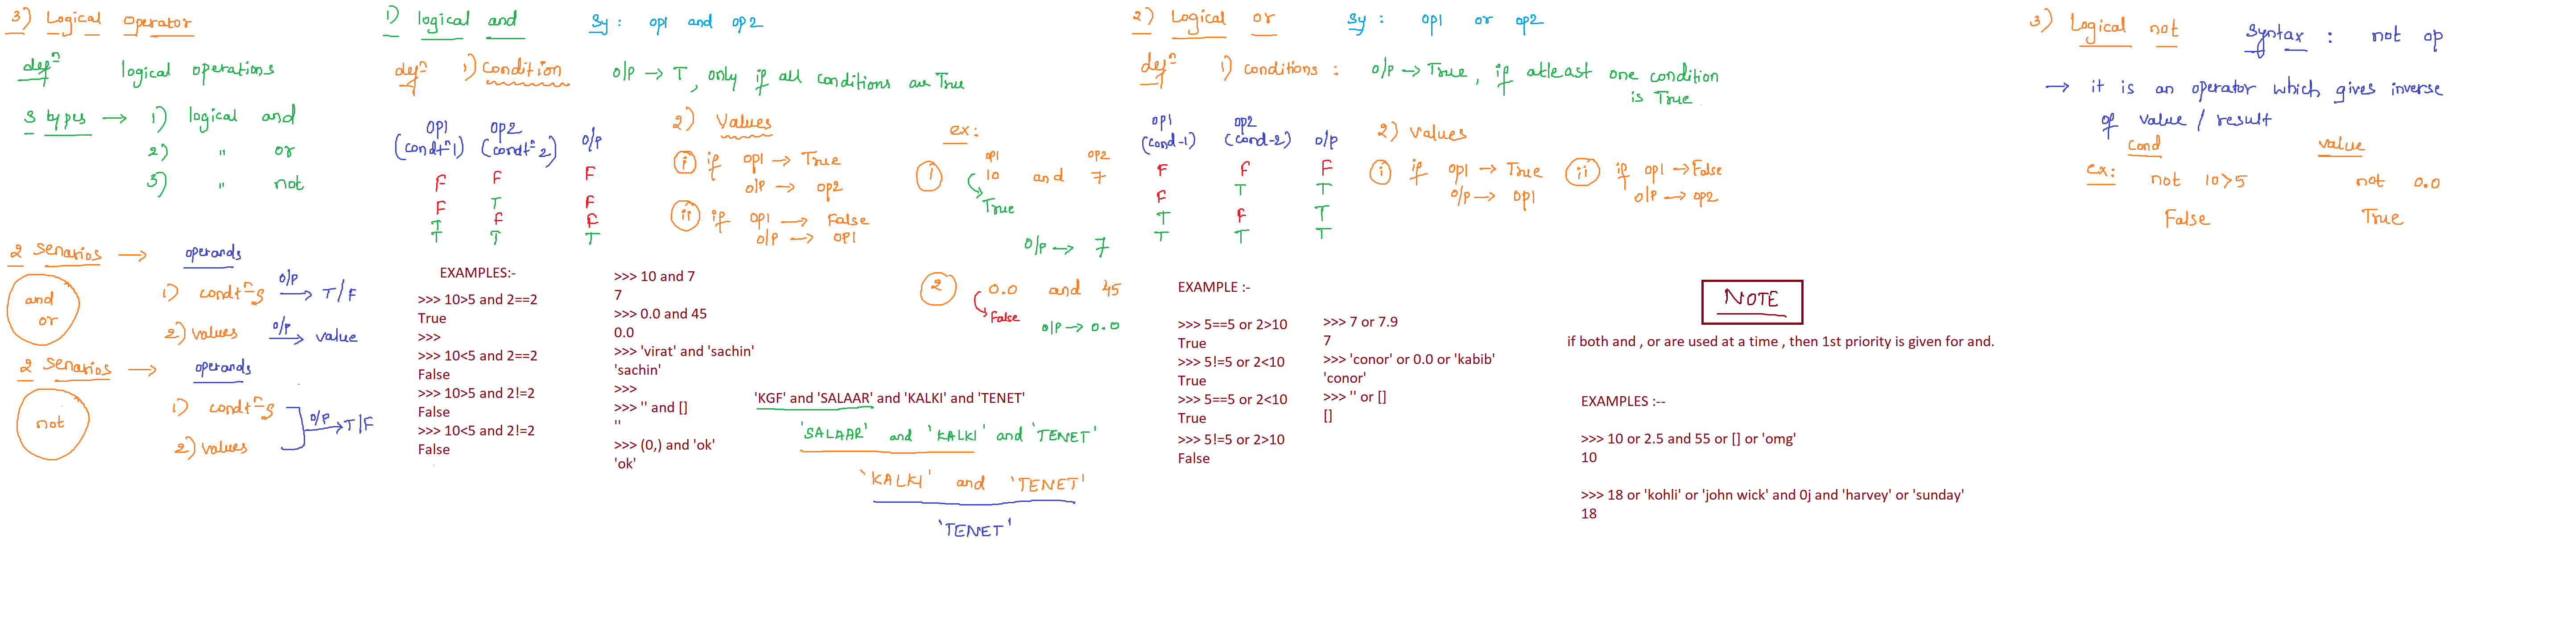 3) Logical Operator
defⁿ logical operations
3 types → 1) logical and
2) " or
3) " not
2 Senarios → operands
and
or
1) condtⁿs o/p → T/F
2) values o/p → value
2 Senarios → operands
not
1) condtⁿs
2) values
o/p → T/F
1) logical and Sy : op1 and op2
defⁿ 1) Condition o/p → T, only if all conditions are True
op1 op2 o/p
(condtⁿ1) (condtⁿ2)
F F F
F T F
T F F
T T T
2) Values
i if op1 → True
o/p → op2
ii if op1 → False
o/p → op1
ex:
op1 op2
1 10 and 7
True
o/p → 7
2 0.0 and 45
False
o/p → 0.0
EXAMPLES:-
>>> 10>5 and 2==2
True
>>>
>>> 10<5 and 2==2
False
>>> 10>5 and 2!=2
False
>>> 10<5 and 2!=2
False
>>> 10 and 7
7
>>> 0.0 and 45
0.0
>>> 'virat' and 'sachin'
'sachin'
>>>
>>> '' and []
''
>>> (0,) and 'ok'
'ok'
'KGF' and 'SALAAR' and 'KALKI' and 'TENET'
'SALAAR' and 'KALKI' and 'TENET'
'KALKI' and 'TENET'
'TENET'
2) Logical or Sy : op1 or op2
defⁿ 1) conditions : o/p → True, if atleast one condition
is True
op1 op2 o/p
(cond-1) (cond-2)
F F F
F T T
T F T
T T T
2) values
i if op1 → True
o/p → op1
ii if op1 → False
o/p → op2
EXAMPLE :-
>>> 5==5 or 2>10
True
>>> 5!=5 or 2<10
True
>>> 5==5 or 2<10
True
>>> 5!=5 or 2>10
False
>>> 7 or 7.9
7
>>> 'conor' or 0.0 or 'kabib'
'conor'
>>> '' or []
[]
NOTE
if both and , or are used at a time , then 1st priority is given for and.
EXAMPLES :--
>>> 10 or 2.5 and 55 or [] or 'omg'
10
>>> 18 or 'kohli' or 'john wick' and 0j and 'harvey' or 'sunday'
18
3) Logical not Syntax : not op
→ it is an operator which gives inverse
of value / result
cond value
ex: not 10>5 not 0.0
False True